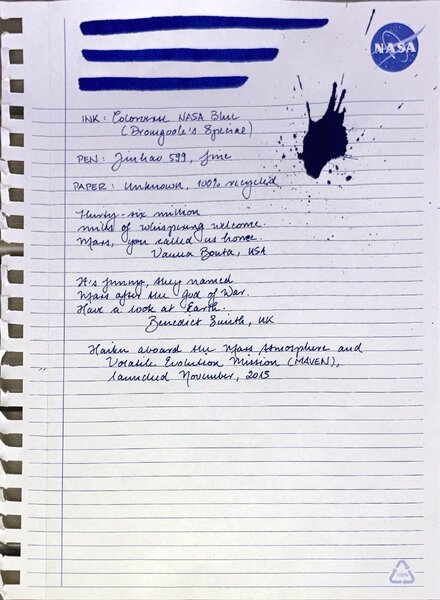 NASA
INK: Colorverse NASA Blue
(Dromgoole's Special)
PEN: Jinhao 599, fine
PAPER: Unknown, 100% recycled
Thirty-six million
miles of whispering welcome.
Mars, you called us home.
Vanna Bonta, USA
It's funny, they named
Mars after the God of War.
Have a look at Earth.
Benedict Smith, UK
Haiku aboard the Mars Atmosphere and
Volatile Evolution Mission (MAVEN),
launched November, 2013
100%